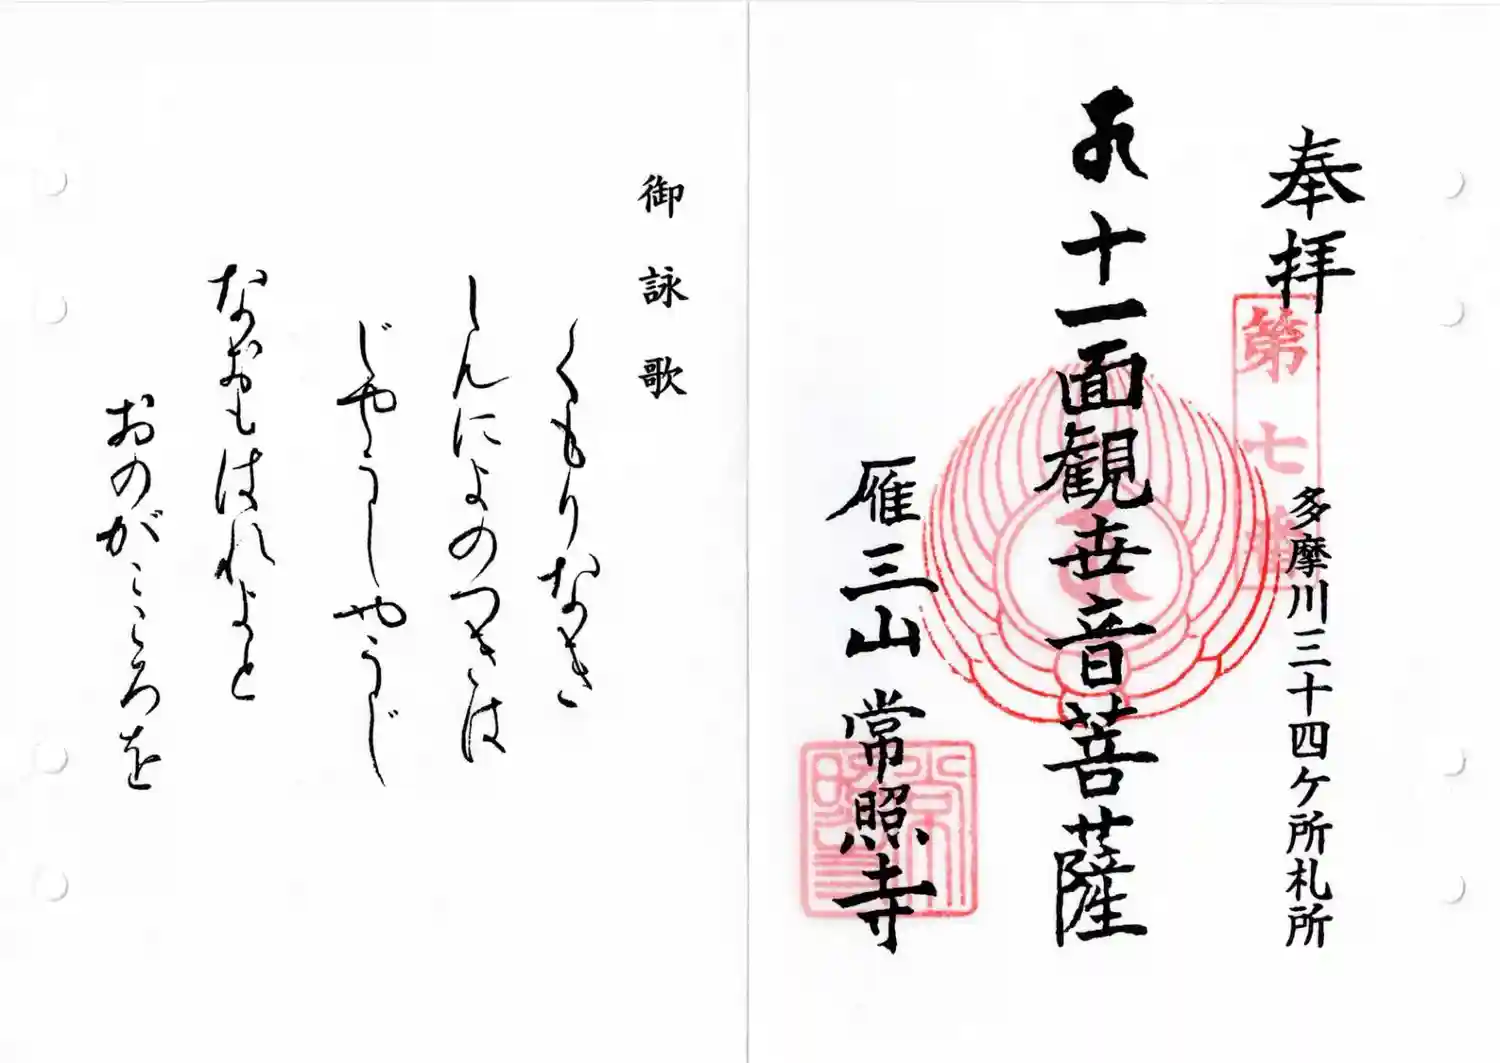 奉拝
第七番
多摩川三十四ケ所札所
十一面観世音菩薩
雁三山 常照寺
御詠歌
くもりなき
しんによのつきは
じやうしやうじ
なおもはれよと
おのがこころを